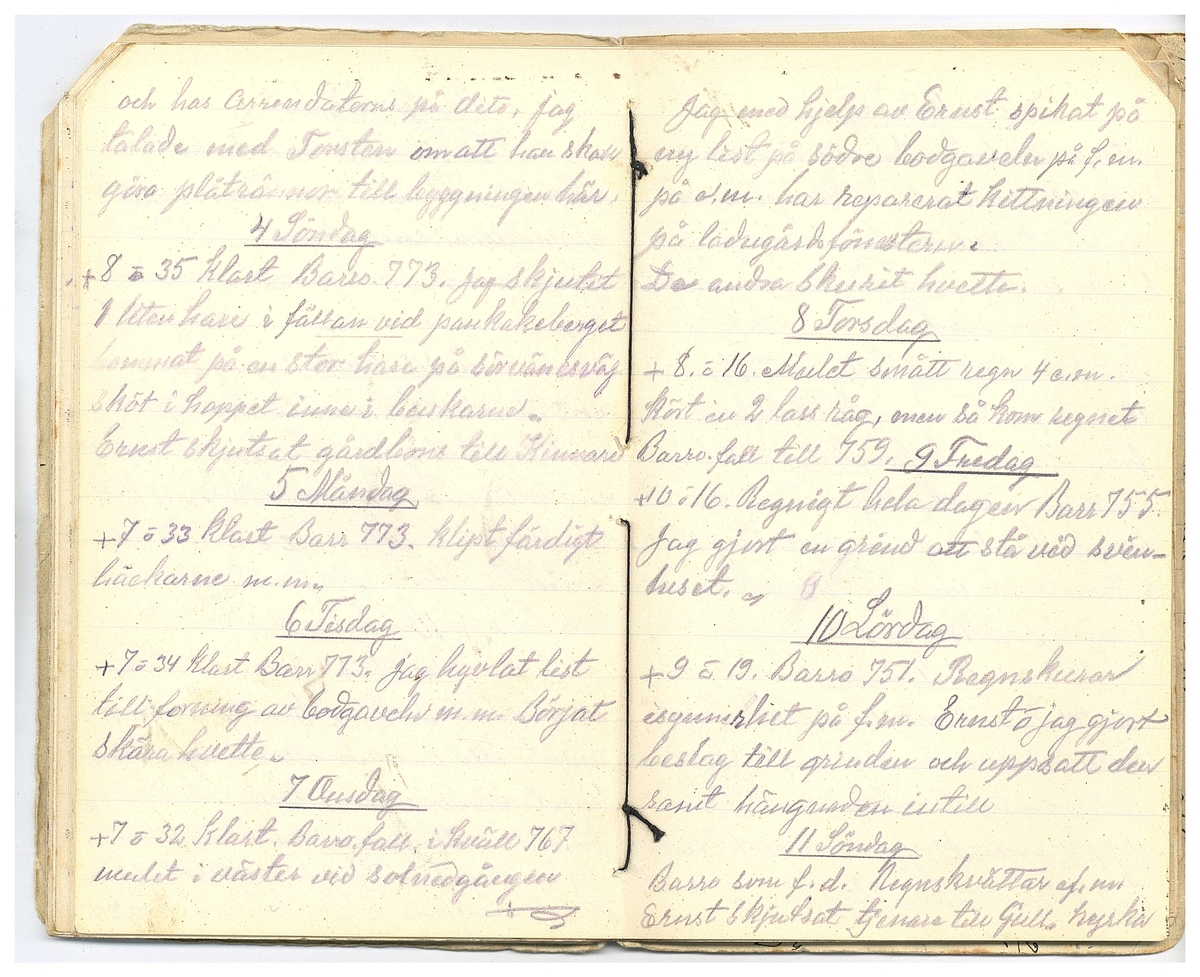 och has arrendatorns på dito, Jag
talade med Torsten om att han skall
göra plåtrännor till byggningen här.
4 Söndag
+8 o 35 klart Barro. 773. jag skjutit
1 liten hare i fällan vid pankakeberget
kommat på en stor hare på
sköt i hoppet inne i buskarne.
Ernst skjutsat gårdbons till
5 Måndag
+7 o 33 klart Barr 773. klipt färdigt
häckarne m.m.
6 Tisdag
+7 o 34 klart Barr 773. jag hyvlat list
till forning av bodgaveln m.m. Börjat
skära hvette.
7 Onsdag
+7 o 32 klart. Barro. fall. i kväll 767
mulet i väster vid solnedgången
Jag med hjelp av Ernst spikat på
ny list på södre bodgaveln på f.m.
på e.m. har reparerat kittningen
på ladugårdsfönstern.
De andra skurit hvette.
8 Torsdag
+ 8. o 16. Mulet smått regn 4 e.m.
kört in 2 lass råg, men så kom regnet
Barro. fall till 759. 9 Fredag
+10 o 16. Regnigt hela dagen Barr 755.
Jag gjort en grind att stå vid svin-
huset.
10 Lördag
+9 o 19. Barro 751. Regnskurar
på f.m. Ernst o jag gjort
beslag till grinden och uppsatt den
samt intill
11 Söndag
Barro som f.d. Regnskvättar ef.m
Ernst skjutsat tjenare till Gull. kyrka